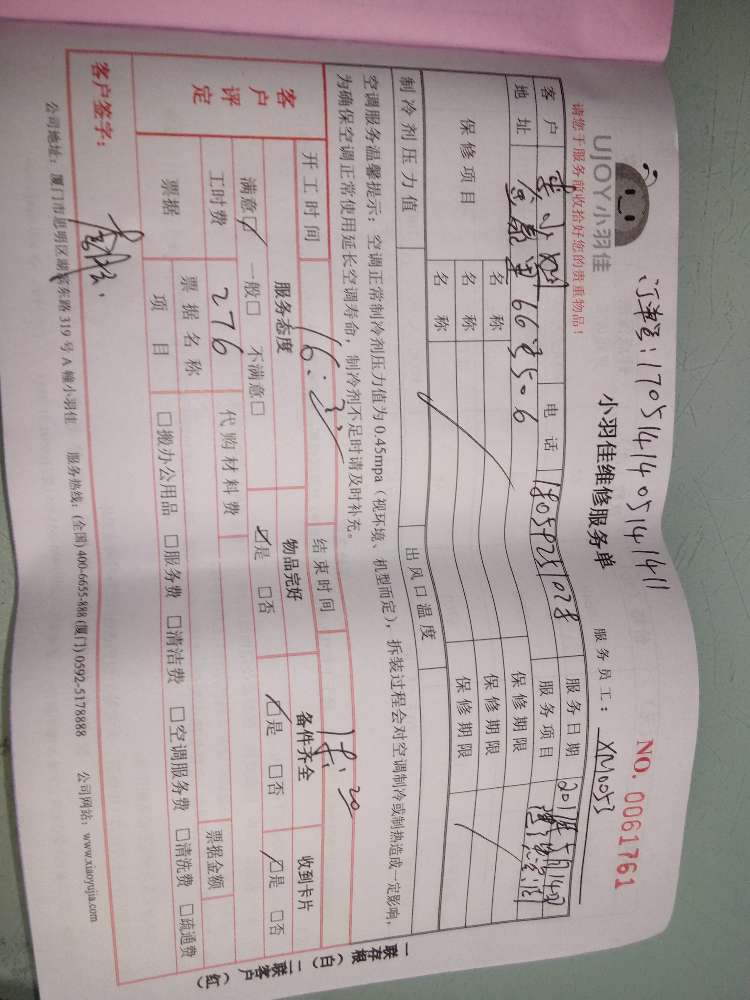 订单号：1705141405141411
NO. 0061761
UJOY小羽佳
小羽佳维修服务单
服务员工：XM0053
请您于服务前收拾好您的贵重物品！
客户 电话 18059251028 服务日期 2017年5月14日
地址 66号506 服务项目
保修项目 名称 保修期限
名称 保修期限
名称 保修期限
制冷剂压力值 出风口温度
空调服务温馨提示：空调正常制冷剂压力值为0.45mpa（视环境、机型而定），拆装过程会对空调制冷或制热造成一定影响，
为确保空调正常使用延长空调寿命，制冷剂不足时请及时补充。
开工时间 结束时间 18:20
客户评定
服务态度 物品完好 备件齐全 收到卡片
满意☑ 一般□ 不满意□ ☑是 □否 ☑是 □否 ☑是 □否
工时费 276 代购材料费
票据 票据名称 票据金额
项目 □搬办公用品 □服务费 □清洁费 □空调服务费 □清洗费 □疏通费
客户签字：
公司地址：厦门市思明区湖滨东路319号A幢小羽佳 服务热线：(全国) 400-6655-888 (厦门) 0592-5178888 公司网站：www.xiaoyujia.com
一联存根（白） 二联客户（红）